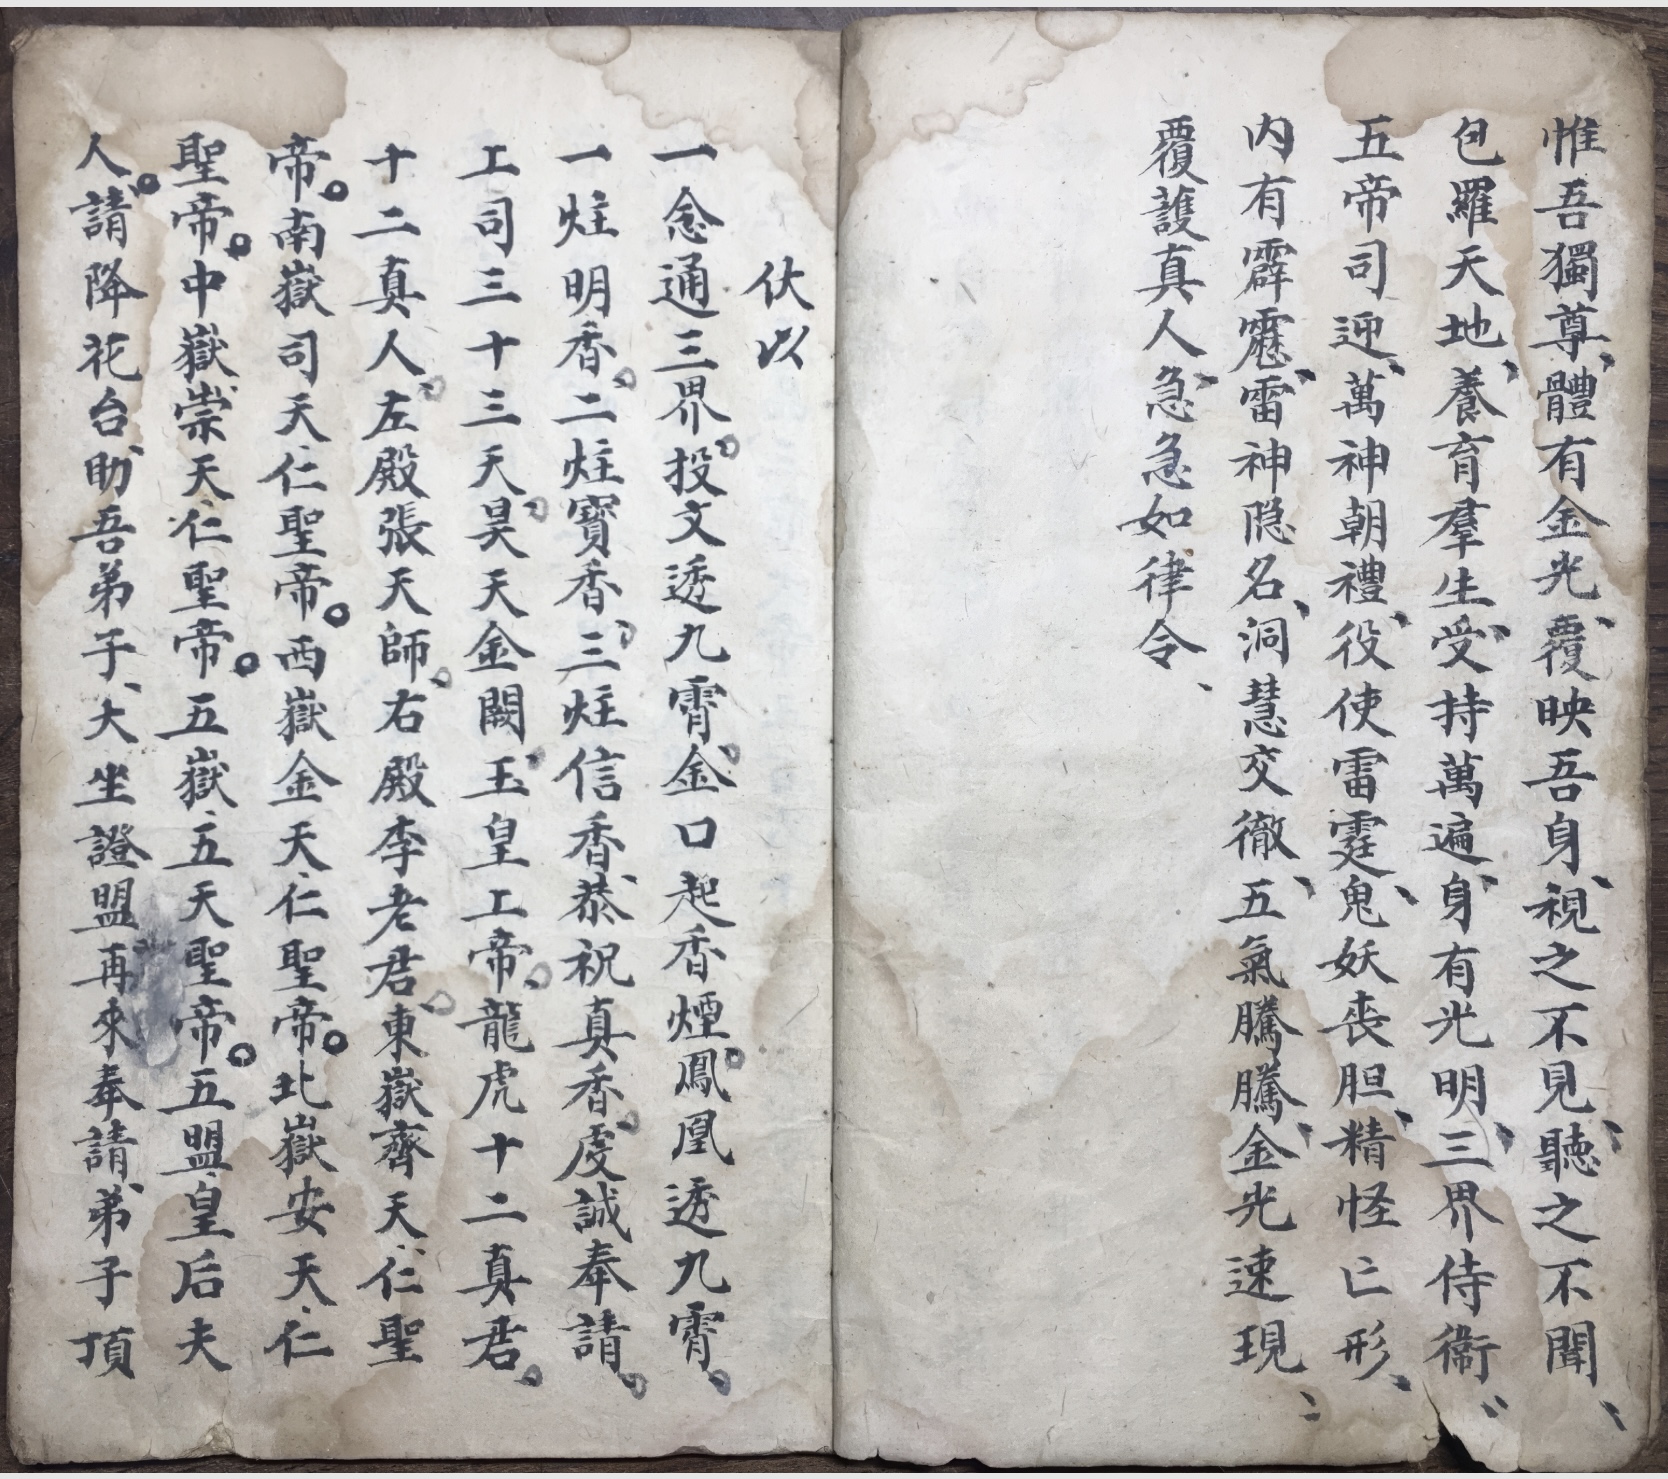 惟吾獨尊、體有金光、覆映吾身、視之不見、聽之不聞、
包羅天地、養育羣生、受持萬遍、身有光明、三界侍衞、
五帝司迎、萬神朝禮、役使雷霆、鬼妖丧胆、精怪亡形、
内有霹靂、雷神隐名、洞慧交徹、五氣騰騰、金光速現、
覆護真人、急急如律令、
伏以
一念通三界。投文透九霄。金口起香煙。鳳凰透九霄。
一炷明香。二炷寶香。三炷信香、恭祝真香。虔誠奉請。
上司三十三天。昊天金闕、玉皇上帝。龍虎十二真君。
十二真人。左殿張天師。右殿李老君。東嶽齊天、仁聖
帝。南嶽司天、仁聖帝。西嶽金天、仁聖帝。北嶽安天、仁
聖帝。中嶽崇天、仁聖帝。五嶽、五天聖帝。五盟、皇后夫
人。請降花台、助吾弟子、大坐證盟、再來奉請、弟子頂